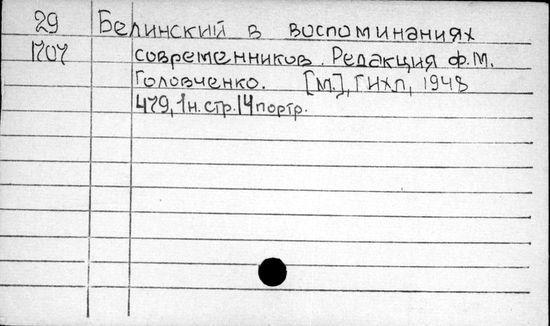 29 Белинский в воспоминаниях
1707 современников. Редакция Ф.М.
Головченко. [М.], ГИХЛ, 1948
479, 1 н. стр. 14 портр.